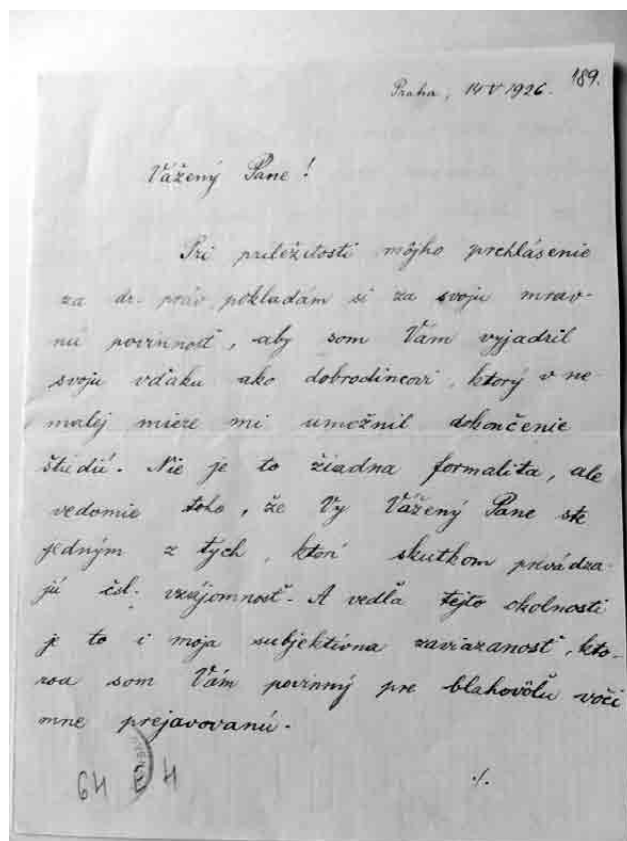 189.
Praha, 14 V 1926.
Vážený Pane!
Pri príležitosti môjho prehlásenie
za dr. práv pokladám si za svoju mrav-
nú povinnosť, aby som Vám vyjadril
svoju vďaku ako dobrodincovi, ktorý v ne-
malej miere mi umožnil dokončenie
štúdií. Nie je to žiadna formalita, ale
vedomie toho, že Vy Vážený Pane ste
jedným z tých, ktorí skutkom prevádza-
jú čsl. vzájomnosť. A vedľa tejto okolnosti
je to i moja subjektívna zaviazanosť, kto-
rou som Vám povinný pre blahovôľu voči
mne prejavovanú.
64 4
./.